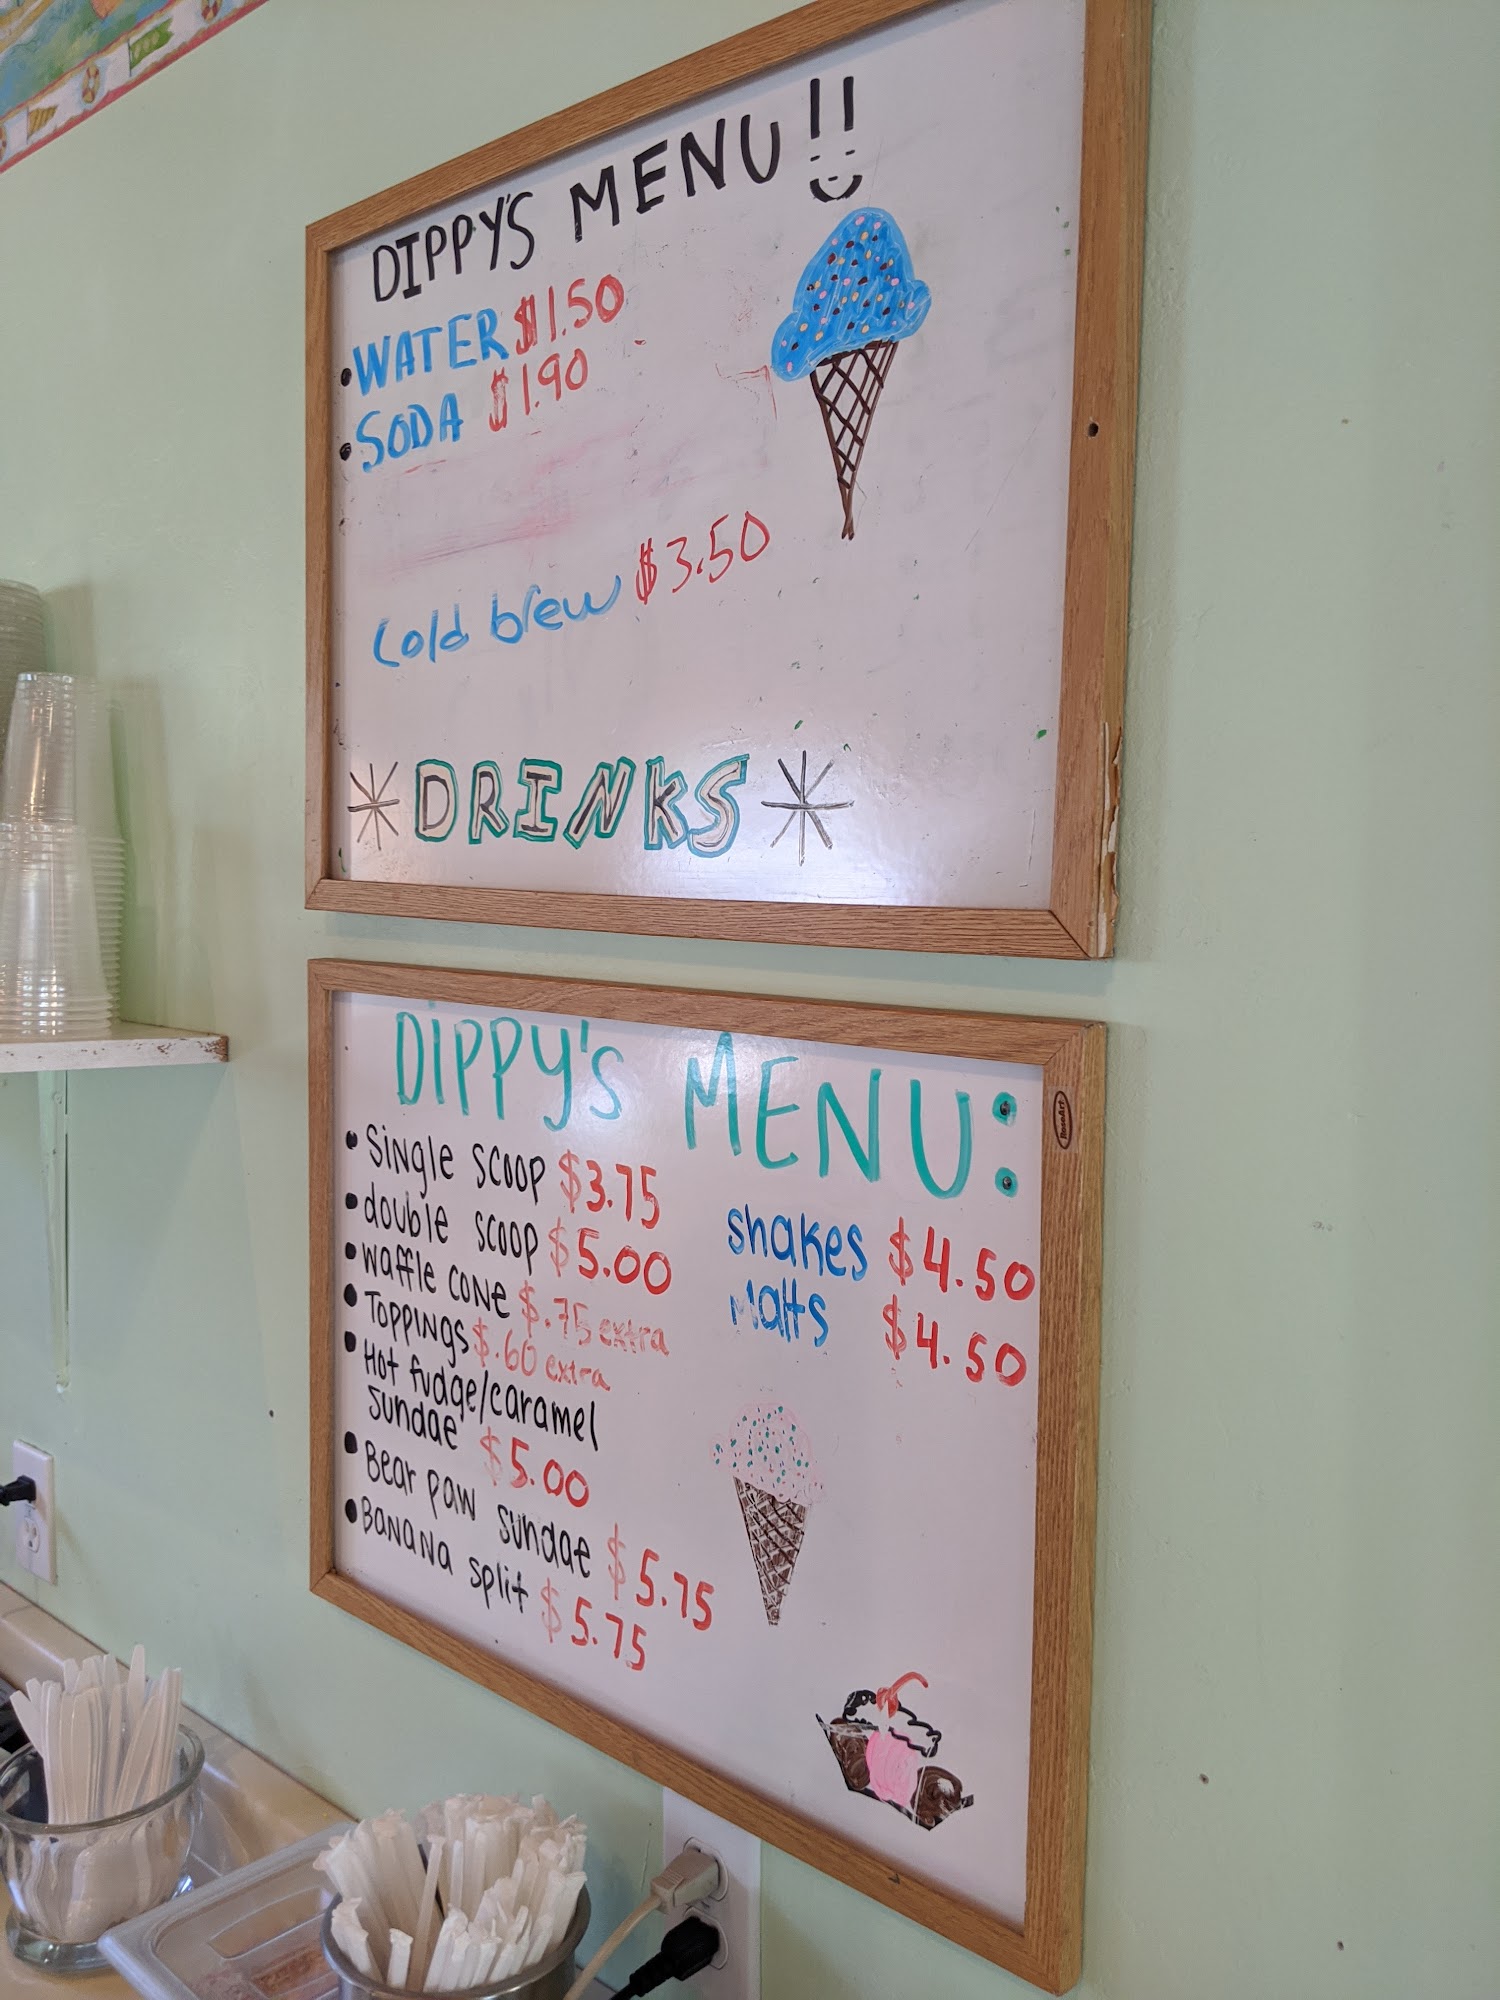 DIPPY'S MENU!!
• WATER $1.50
• SODA $1.90
Cold brew $3.50
* DRINKS *
DiPPY'S MENU:
• Single scoop $3.75
• double scoop $5.00
• waffle cone $.75 extra
• Toppings $.60 extra
• Hot fudge/caramel
sundae $5.00
• Bear paw sundae $5.75
• Banana split $5.75
shakes $4.50
Malts $4.50
RoseArt